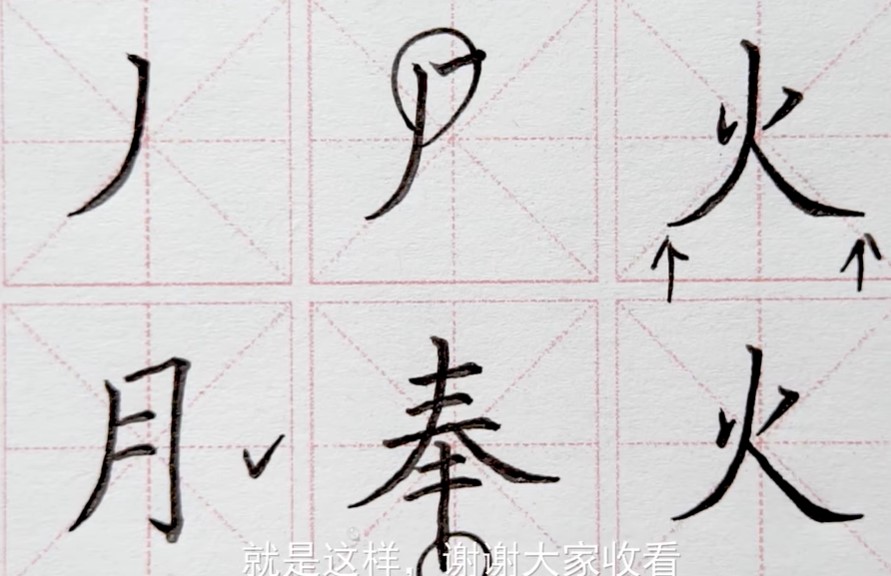 火
月 奉 火
就是这样，谢谢大家收看